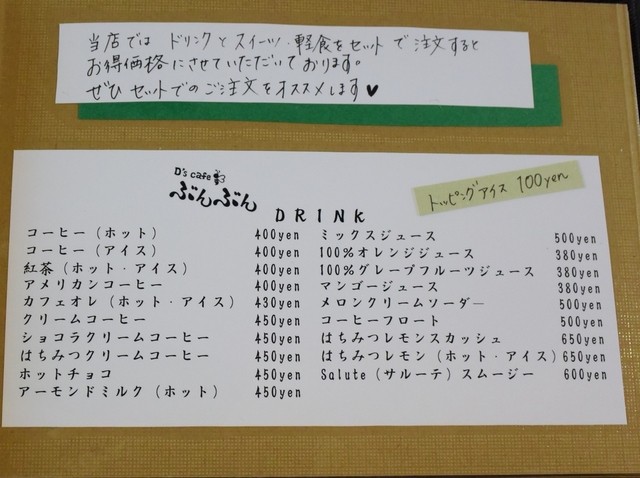 当店では ドリンクとスイーツ・軽食をセットで注文すると
お得価格にさせていただいております。
ぜひ セットでのご注文をオススメします♥
D's cafe
ぶんぶん
トッピングアイス 100yen
DRINK
コーヒー（ホット） 400yen
コーヒー（アイス） 400yen
紅茶（ホット・アイス） 400yen
アメリカンコーヒー 400yen
カフェオレ（ホット・アイス） 430yen
クリームコーヒー 450yen
ショコラクリームコーヒー 450yen
はちみつクリームコーヒー 450yen
ホットチョコ 450yen
アーモンドミルク（ホット） 450yen
ミックスジュース 500yen
100％オレンジジュース 380yen
100％グレープフルーツジュース 380yen
マンゴージュース 380yen
メロンクリームソーダ― 500yen
コーヒーフロート 500yen
はちみつレモンスカッシュ 650yen
はちみつレモン（ホット・アイス）650yen
Salute（サルーテ）スムージー 600yen